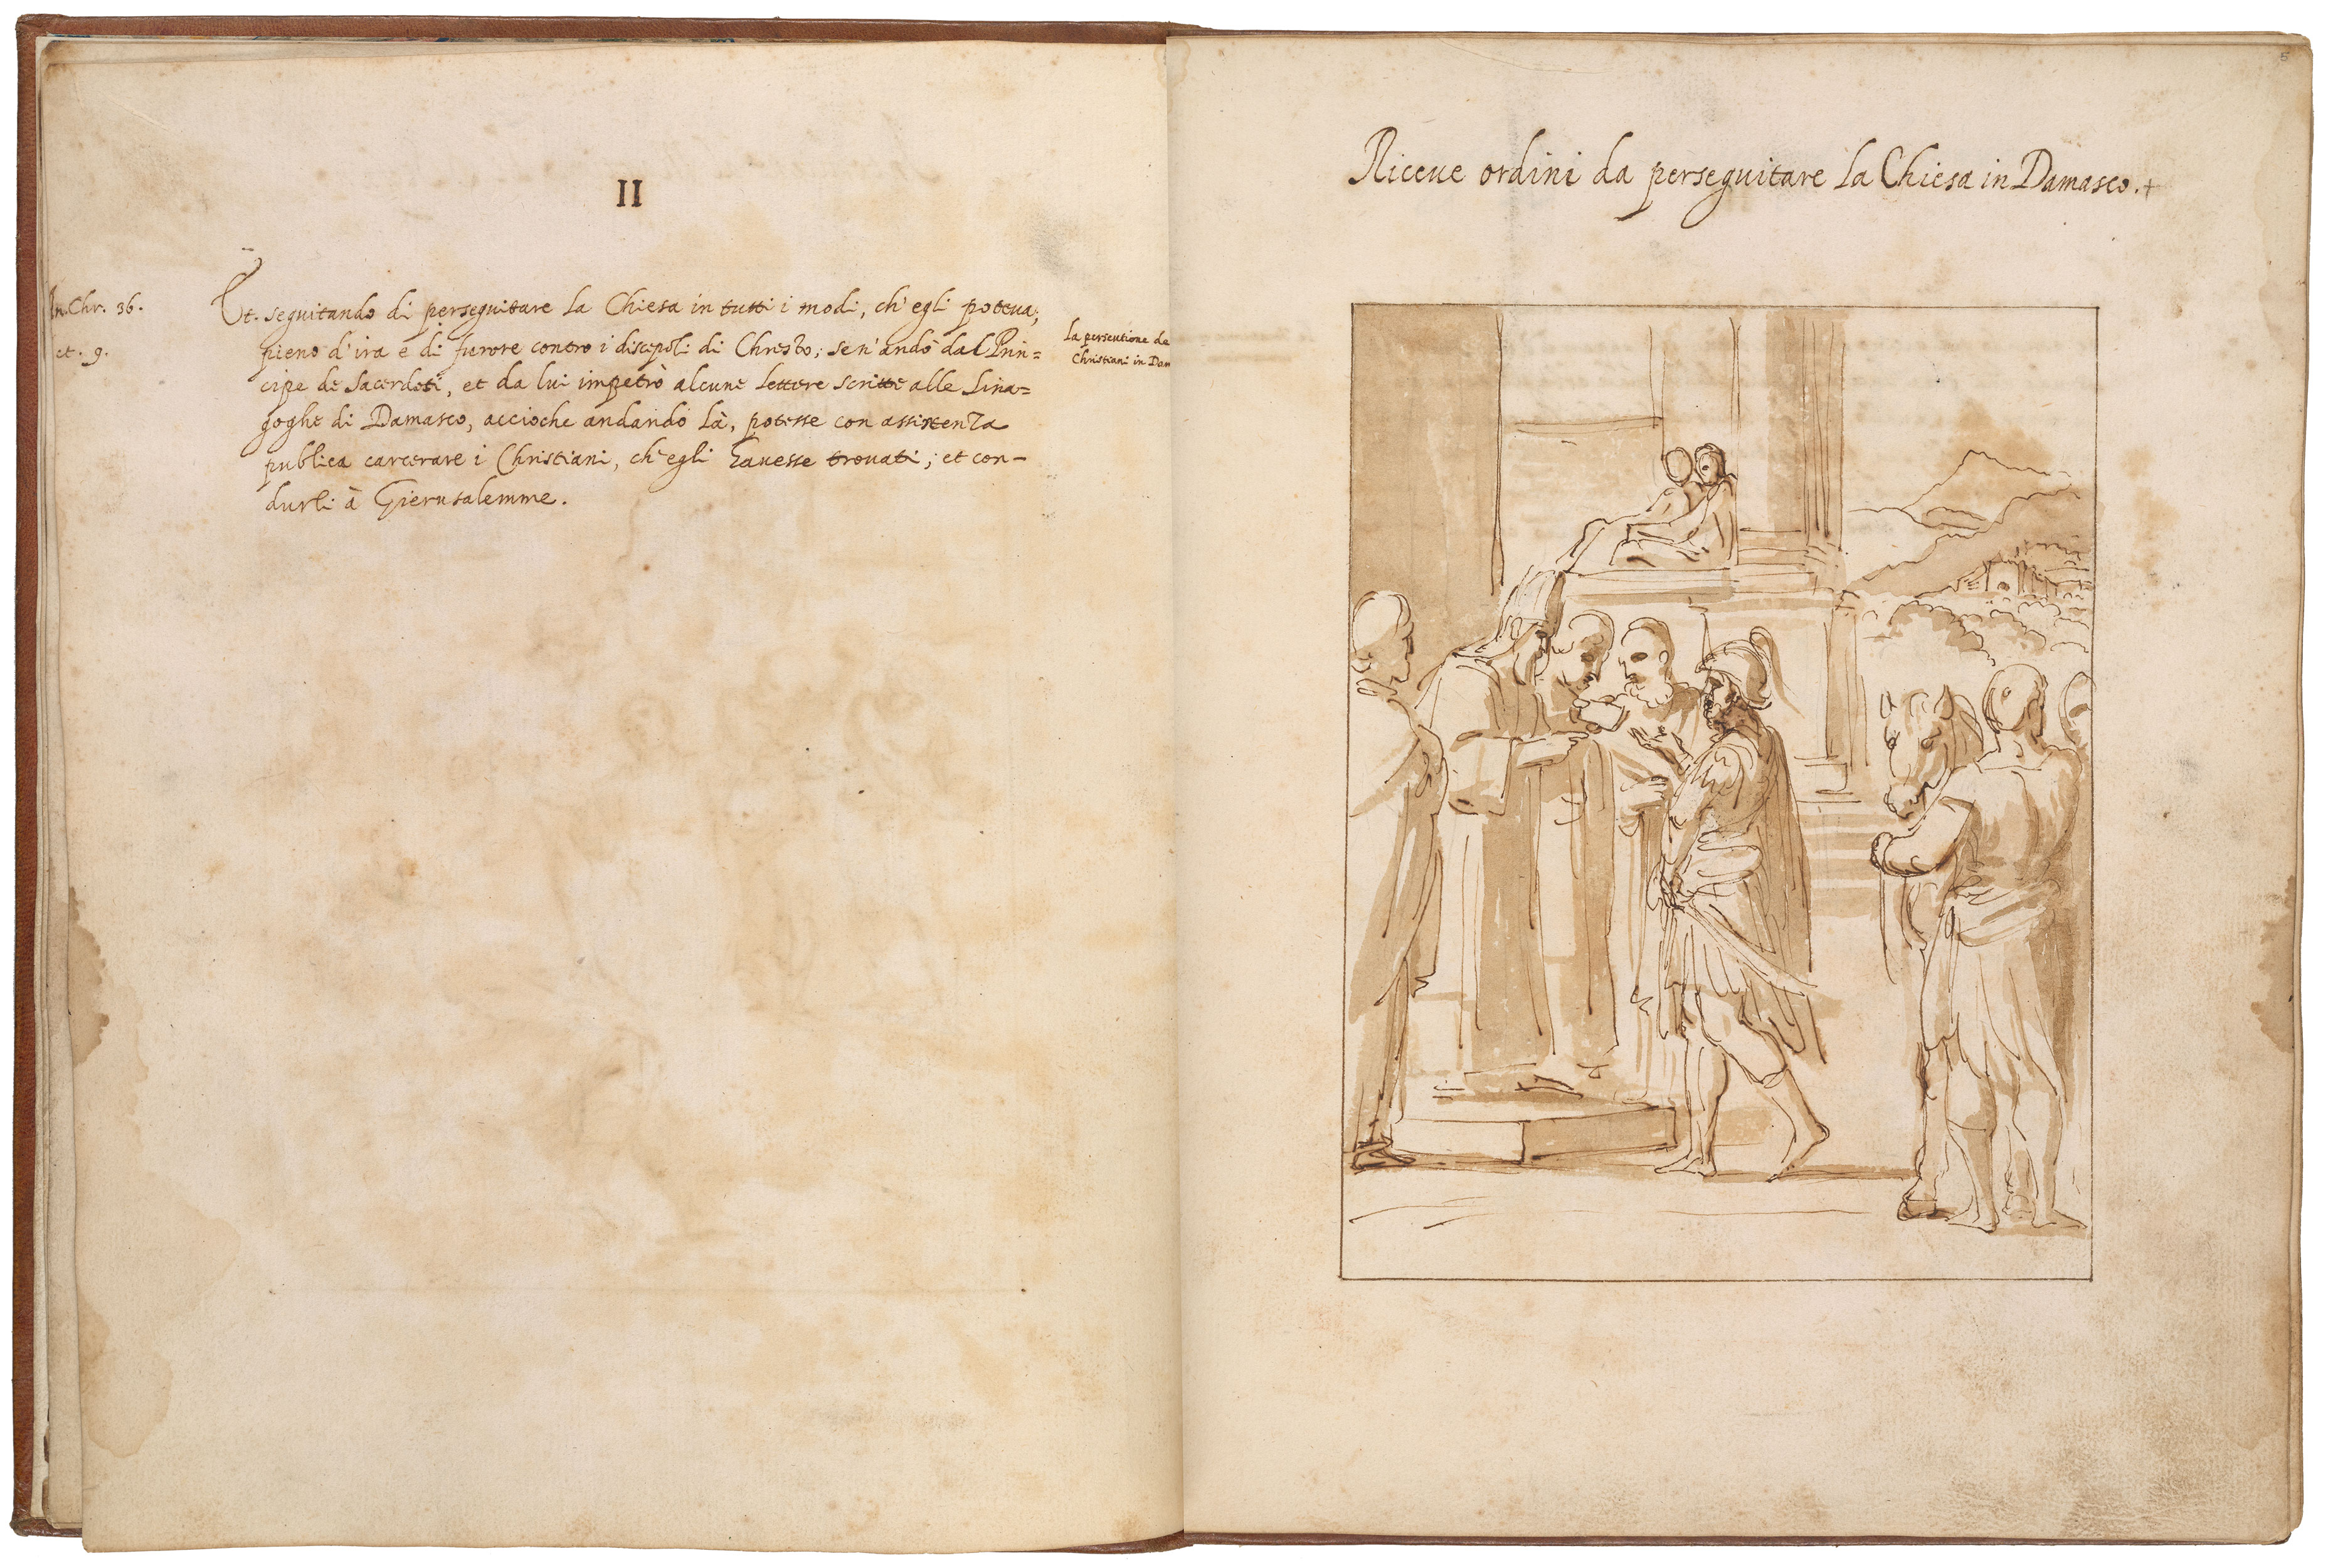 II
An. Chr. 36.
Act. 9.
Et. seguitando di perseguitare la Chiesa in tutti i modi, ch'egli poteua;
pieno d'ira e di furore contro i discepoli di Christo; se n'andò dal Prin=
cipe de Sacerdoti, et da lui impetrò alcune lettere scritte alle Sina=
goghe di Damasco, accioche andando là, potesse con assistenza
publica carcerare i Christiani, ch'egli hauesse trouati; et con-
durli à Gierusalemme.
la persecutione de
Christiani in Dam
5
Riceue ordini da perseguitare la Chiesa in Damasco.+